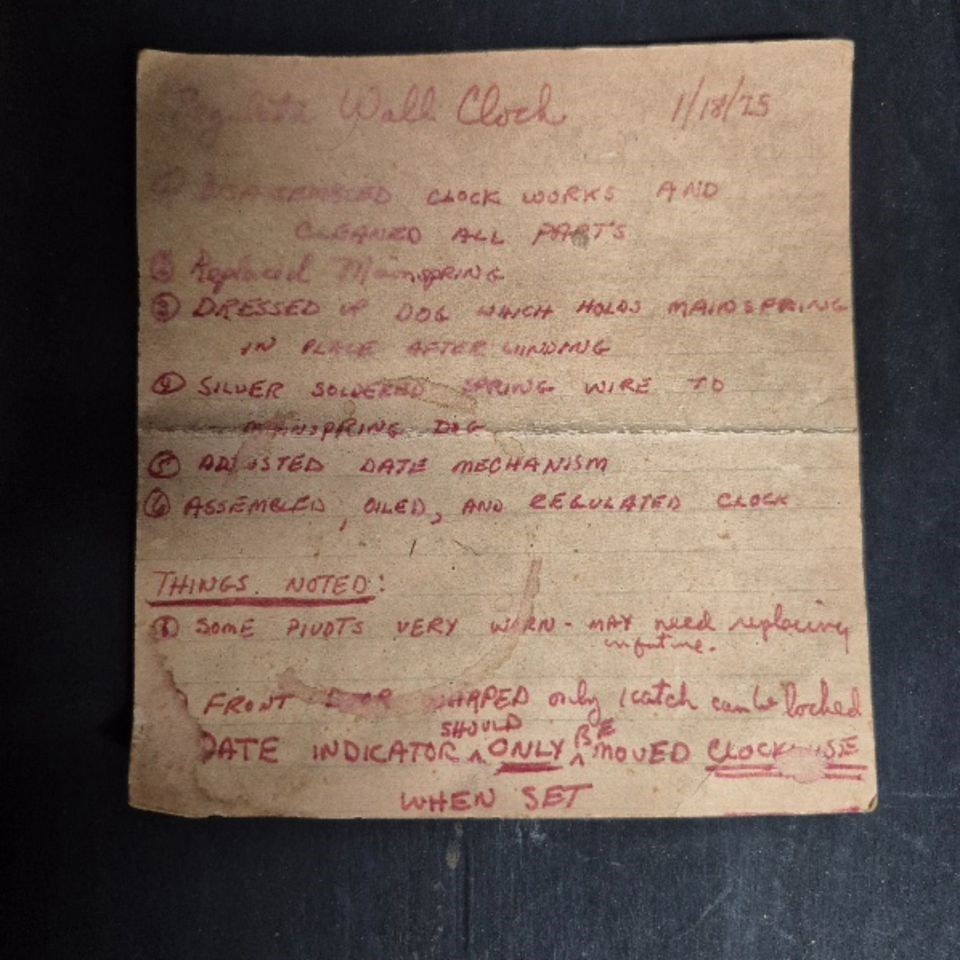 Regulator Wall Clock 1/18/75
① DISASSEMBLED CLOCK WORKS AND
CLEANED ALL PARTS
② Replaced MainSPRING
③ DRESSED UP DOG WHICH HOLDS MAINSPRING
IN PLACE AFTER WINDING
④ SILVER SOLDERED SPRING WIRE TO
MAINSPRING DOG
⑤ ADJUSTED DATE MECHANISM
⑥ ASSEMBLED, OILED, AND REGULATED CLOCK
THINGS NOTED:
SOME PIVOTS VERY WORN - MAY need replacing
in future.
FRONT DOOR WARPED only 1 catch can be locked
SHOULD BE
DATE INDICATOR ^ ONLY ^ MOVED CLOCKWISE
WHEN SET